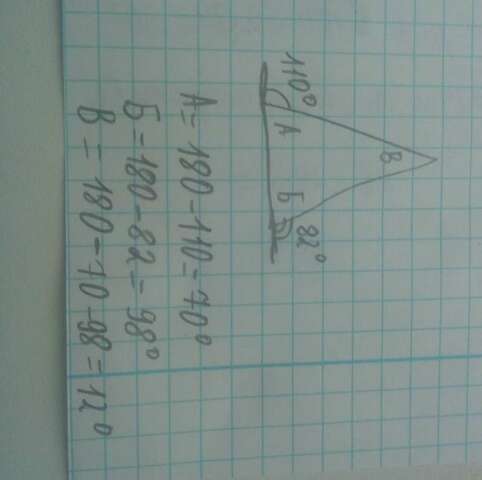 110°
В
А
Б
82°
А = 180 - 110 = 70°
Б = 180 - 82 = 98°
В = 180 - 70 - 98 = 12°